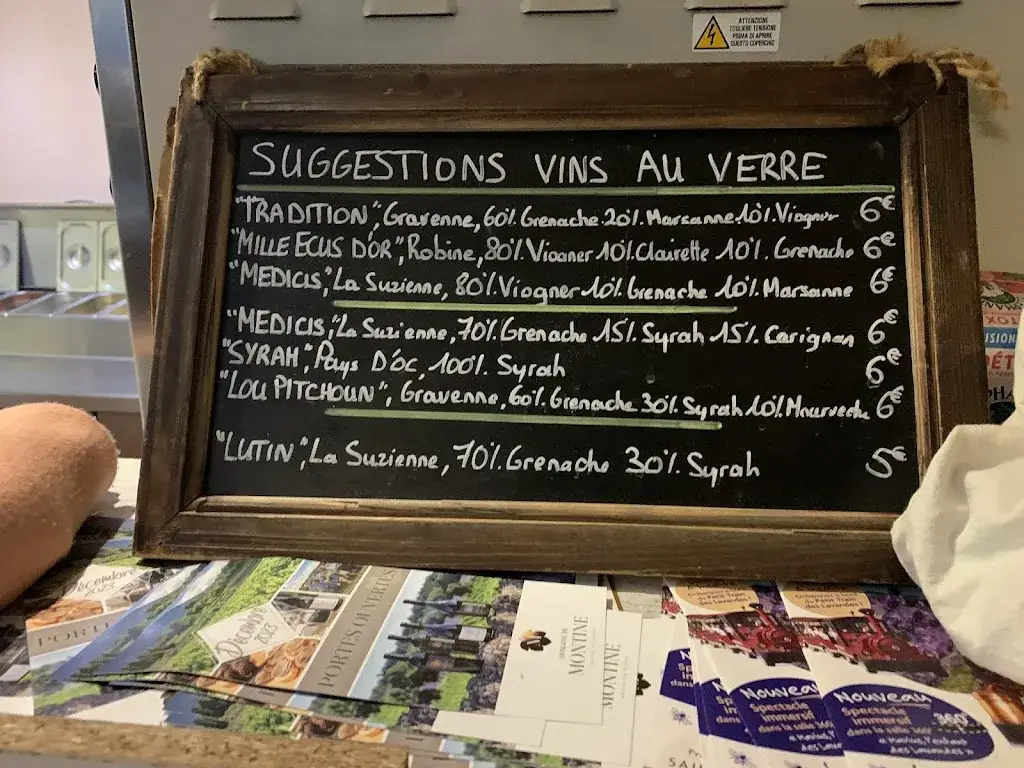 ATTENZIONE
TOGLIERE TENSIONE
PRIMA DI APRIRE
QUESTO COPERCHIO
SUGGESTIONS VINS AU VERRE
"TRADITION", Gravenne, 60%. Grenache 20%. Marsanne 10%. Viogner 6€
"MILLE ECUS D'OR", Robine, 80%. Viogner 10%. Clairette 10%. Grenache 6€
"MEDICIS", La Suzienne, 80%. Viogner 10%. Grenache 10%. Marsanne 6€
"MEDICIS", La Suzienne, 70%. Grenache 15%. Syrah 15%. Carignan 6€
"SYRAH", Pays D'óc, 100%. Syrah 6€
"LOU PITCHOUN", Gravenne, 60%. Grenache 30%. Syrah 10%. Mourvedre 6€
"LUTIN", La Suzienne, 70%. Grenache 30%. Syrah 5€
Décembre
2023
PORTES
Décembre
2023
PORTES OUVERTES
DOMAINE DE
MONTINE
MONTINE
du Petit Train
des Lavandes
Nouveau
Spectacle
immersif
dans la salle 360°
Nouveau
Spectacle
immersif
dans la salle 360°
360°